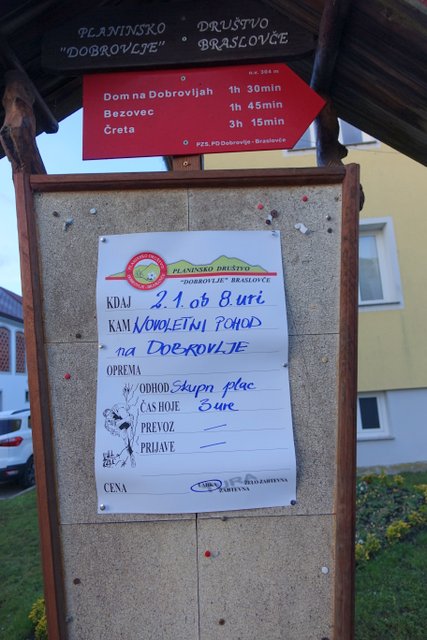 PLANINSKO DRUŠTVO
"DOBROVLJE" BRASLOVČE
n.v. 304 m
Dom na Dobrovljah 1h 30min
Bezovec 1h 45min
Čreta 3h 15min
PZS, PD Dobrovlje - Braslovče
PLANINSKO DRUŠTVO
DOBROVLJE - BRASLOVČE
PLANINSKO DRUŠTVO
"DOBROVLJE" BRASLOVČE
KDAJ 2.1. ob 8. uri
KAM NOVOLETNI POHOD
na DOBROVLJE
OPREMA
ODHOD Skupn plac
ČAS HOJE 3 ure
PREVOZ –
PRIJAVE –
CENA
TURA
LAHKA ZELO ZAHTEVNA
ZAHTEVNA